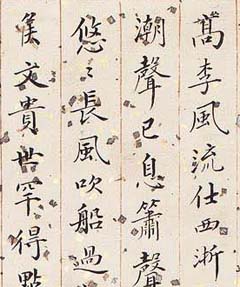 髙李風流仕西浙
潮聲已息簫聲
悠〻長風吹船過
侯文貴世罕得